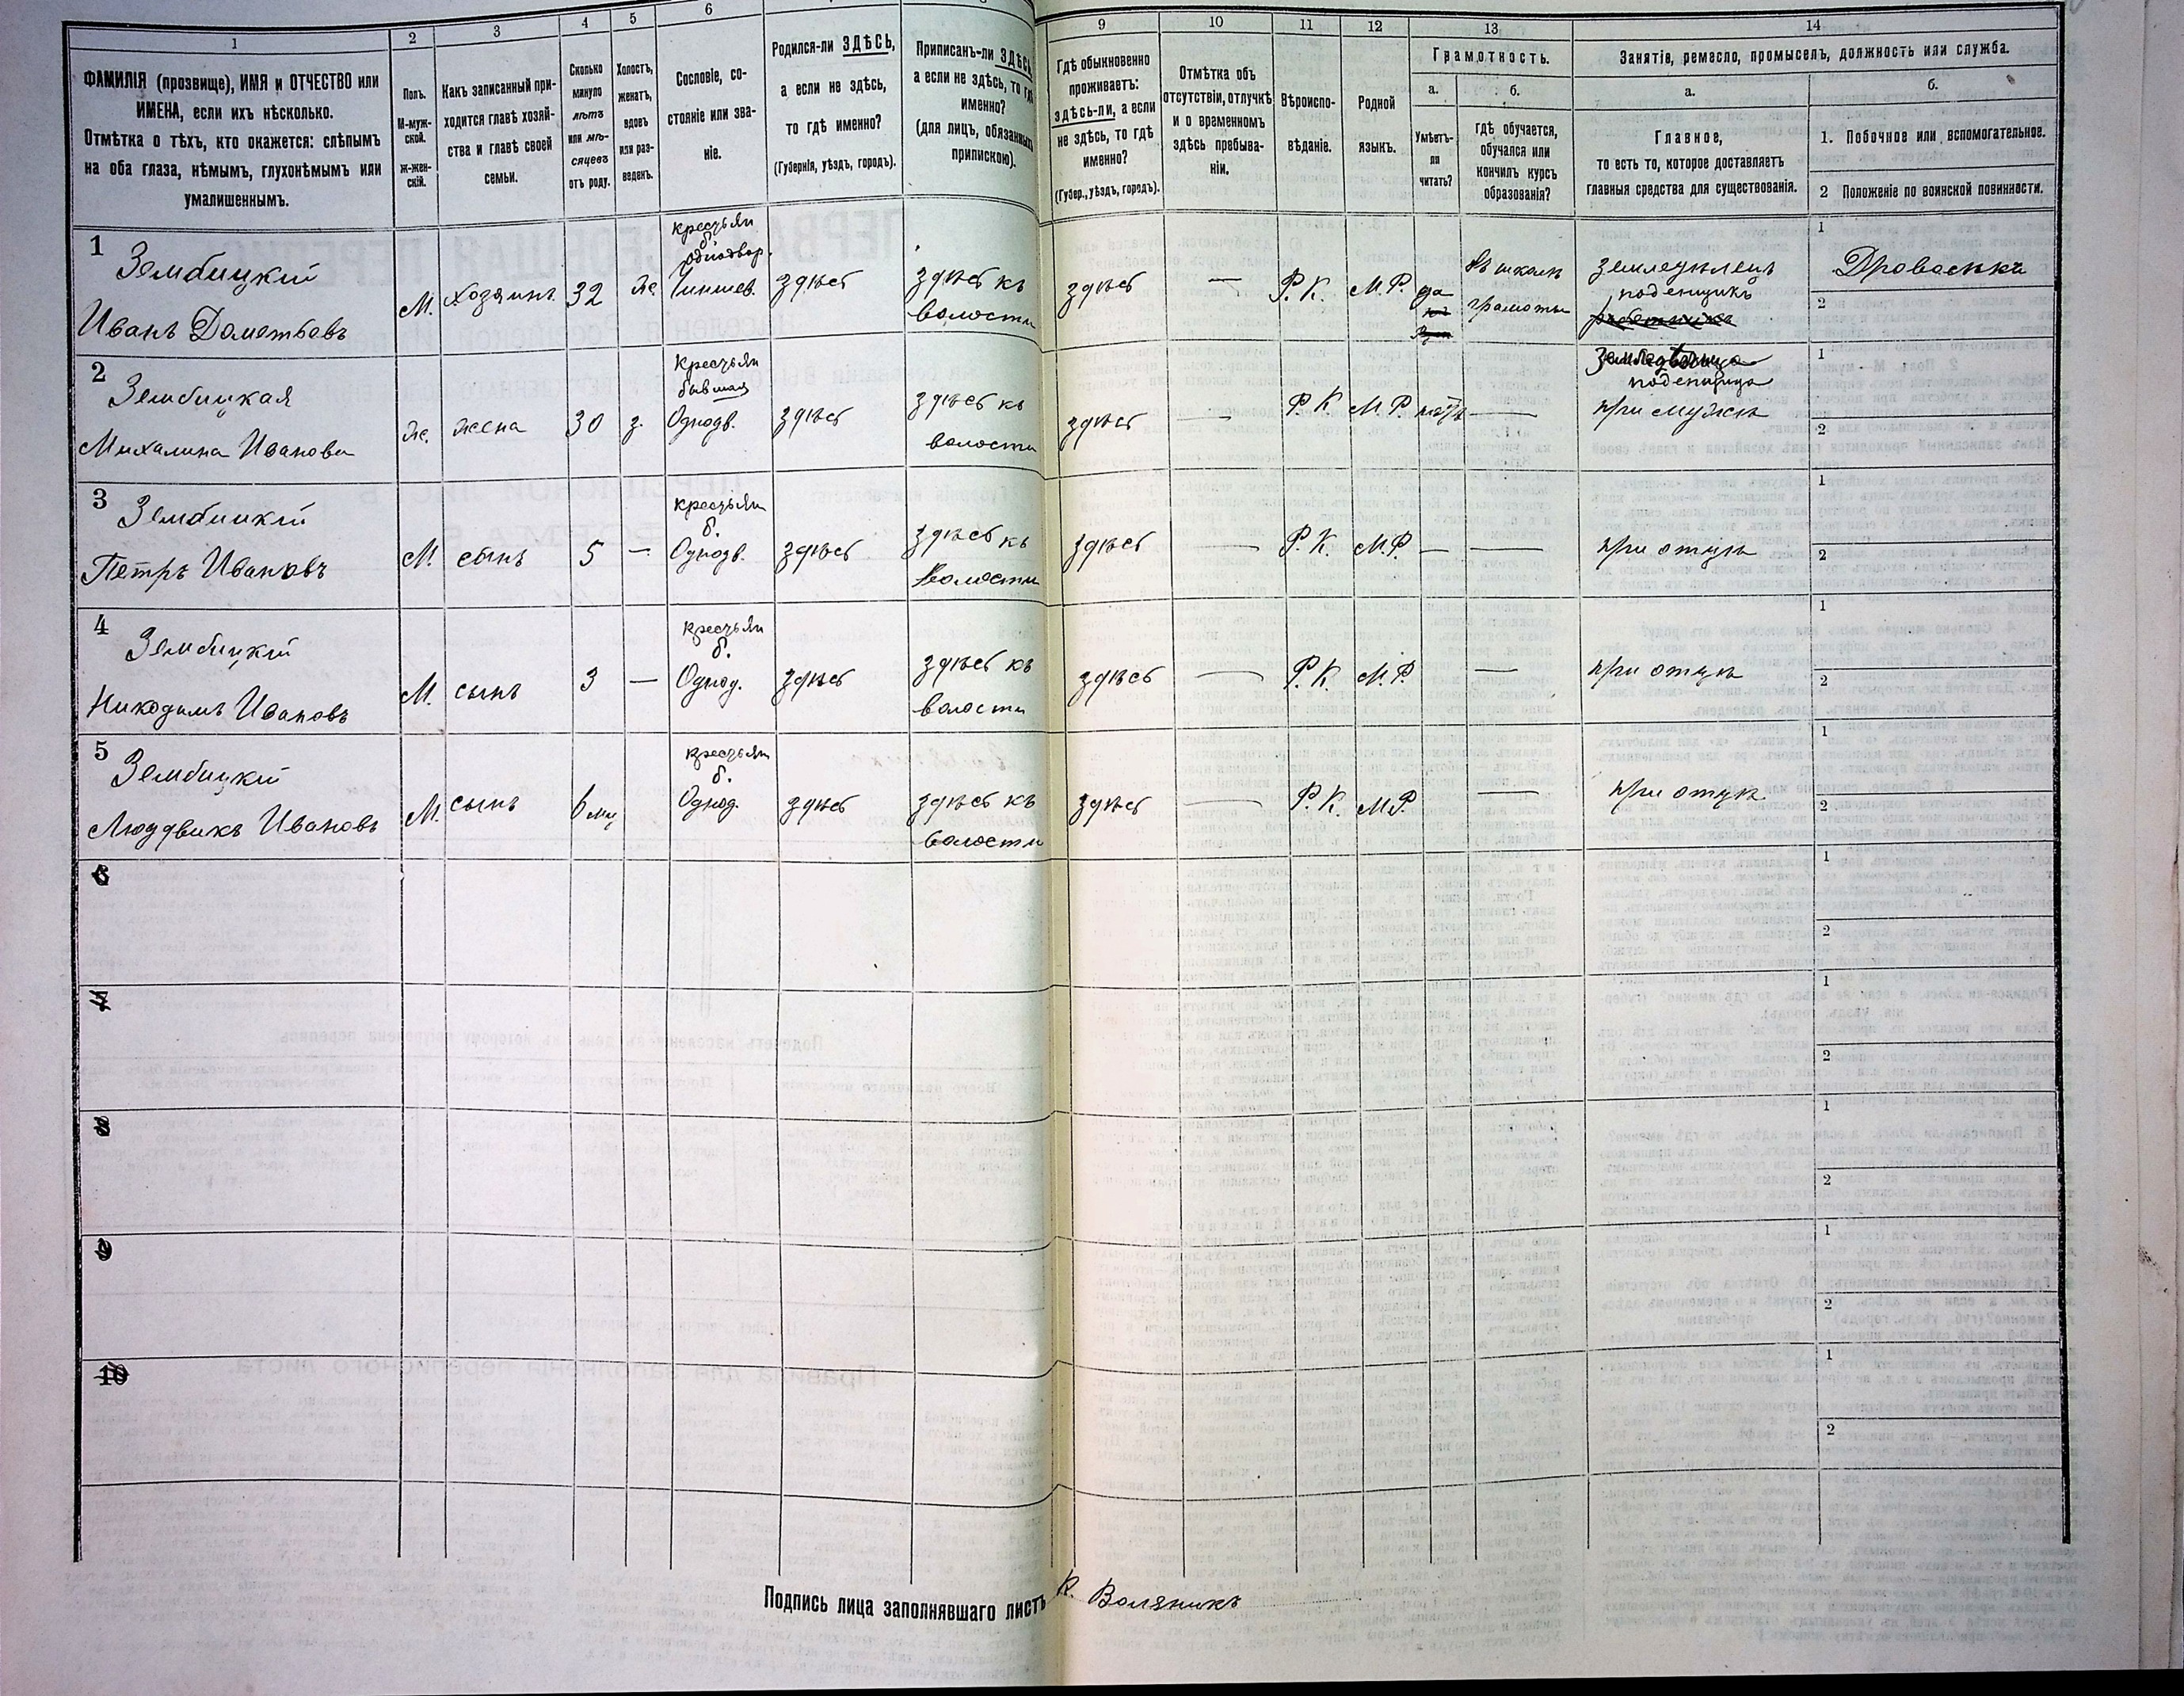 1
2
3
4
5
6
9
10
11
12
13
14
ФАМИЛІЯ (прозвище), ИМЯ и ОТЧЕСТВО или
ИМЕНА, если ихъ нѣсколько.
Отмѣтка о тѣхъ, кто окажется: слѣпымъ
на оба глаза, нѣмымъ, глухонѣмымъ или
умалишеннымъ.
Полъ.
М-муж-
ской.
Ж-жен-
скій.
Какъ записанный при-
ходится главѣ хозяй-
ства и главѣ своей
семьи.
Сколько
минуло
лѣтъ
или мѣ-
сяцевъ
отъ роду.
Холостъ,
женатъ,
вдовъ
или раз-
веденъ.
Сословіе, со-
стояніе или зва-
ніе.
Родился-ли ЗДѢСЬ,
а если не здѣсь,
то гдѣ именно?
(Губернія, уѣздъ, городъ).
Приписанъ-ли ЗДѢСЬ,
а если не здѣсь, то гдѣ
именно?
(для лицъ, обязанныхъ
припискою).
Гдѣ обыкновенно
проживаетъ:
здѣсь-ли, а если
не здѣсь, то гдѣ
именно?
(Губер., уѣздъ, городъ).
Отмѣтка объ
отсутствіи, отлучкѣ
и о временномъ
здѣсь пребыва-
ніи.
Вѣроиспо-
вѣданіе.
Родной
языкъ.
Грамотность.
а.
Умѣетъ-
ли
читать?
б.
гдѣ обучается,
обучался или
кончилъ курсъ
образованія?
Занятіе, ремесло, промыселъ, должность или служба.
а.
Главное,
то есть то, которое доставляетъ
главныя средства для существованія.
б.
1. Побочное или вспомогательное.
2 Положеніе по воинской повинности.
1
Зембицкій
Иванъ Дометьевъ
М.
Хозяинъ
32
же.
крестьян
б.
однодвор.
Чиншев.
здѣсь
здѣсь къ
волости
здѣсь
—
Р. К.
М.Р.
да
въ школѣ
грамоты
земледѣлецъ
поденщикъ
1
Дровосѣкъ
2
2
Зембицкая
Михалина Иванова
же.
жена
30
з.
Крестьян
бывшая
Однодв.
здѣсь
здѣсь къ
волости
здѣсь
—
Р. К
М.Р.
нѣтъ
—
поденщица
при мужѣ
1
2
3
Зембицкій
Петръ Ивановъ
М.
сынъ
5
—
крестьян
б.
Однодв.
здѣсь
здѣсь къ
волости
здѣсь
—
Р. К.
М.Р.
—
—
при отцѣ
1
2
4
Зембицкій
Никодимъ Ивановъ
М.
сынъ
3
—
крестьян
б.
Однод.
здѣсь
здѣсь къ
волости
здѣсь
—
Р. К.
М.Р.
—
при отцѣ
1
2
5
Зембицкій
Людвикъ Ивановъ
М.
сынъ
6 мц
крестьян
б.
Однод.
здѣсь
здѣсь къ
волости
здѣсь
—
Р. К.
М.Р.
—
при отцѣ
1
2
6
1
2
7
1
2
8
1
2
9
1
2
10
1
2
Подпись лица заполнявшаго листъ К. Воляникъ